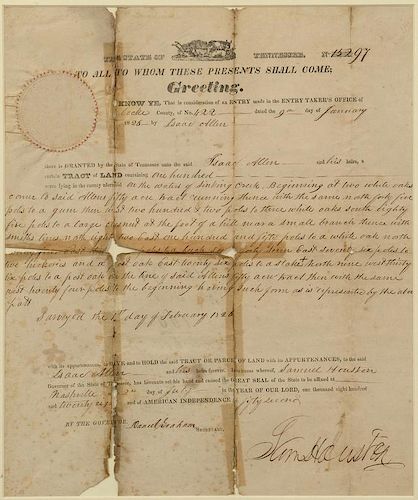 THE STATE OF TENNESSEE. No 15297
TO ALL TO WHOM THESE PRESENTS SHALL COME;
Greeting.
KNOW YE, That in consideration of an ENTRY made in the ENTRY TAKER'S OFFICE of
Cocke County, of No. 422 dated the 9th day of January
1826 by Isaac Allen
there is GRANTED by the State of Tennessee unto the said Isaac Allen and his heirs, a
certain TRACT of LAND containing One hundred
acres lying in the county aforesaid On the waters of Sinking Creek. Beginning at two white oaks
corner to said Allens fifty acre tract running thence with the same north forty five
poles to a gum then west two hundred & two poles to three white oaks south eighty
five poles to a large chesnut at the foot of a hill near a small branch then with
Smiths lines north eight west one hundred and fifty poles to a white oak north
east seventy six poles to
two hickories and a post oak east twenty six poles to a stake north nine west thirty
six poles to a post oak on the line of said Allens fifty acre tract then with the same
west twenty four poles to the beginning having such form as is represented by the above
platt
Surveyed the 1st day of February 1826
with its appurtenances, to HAVE and to HOLD the said TRACT OR PARCEL OF LAND with its APPURTENANCES, to the said
Isaac Allen and his heirs forever. In witness whereof, Samuel Houston
Governor of the State of Tennessee, has hereunto set his hand and caused the GREAT SEAL of the State to be affixed at
Nashville day of July in the YEAR OF OUR LORD, one thousand eight hundred
and twenty eight and of AMERICAN INDEPENDENCE the fifty second
BY THE GOVERNOR. Sam Houston
Daniel Graham SECRETARY.